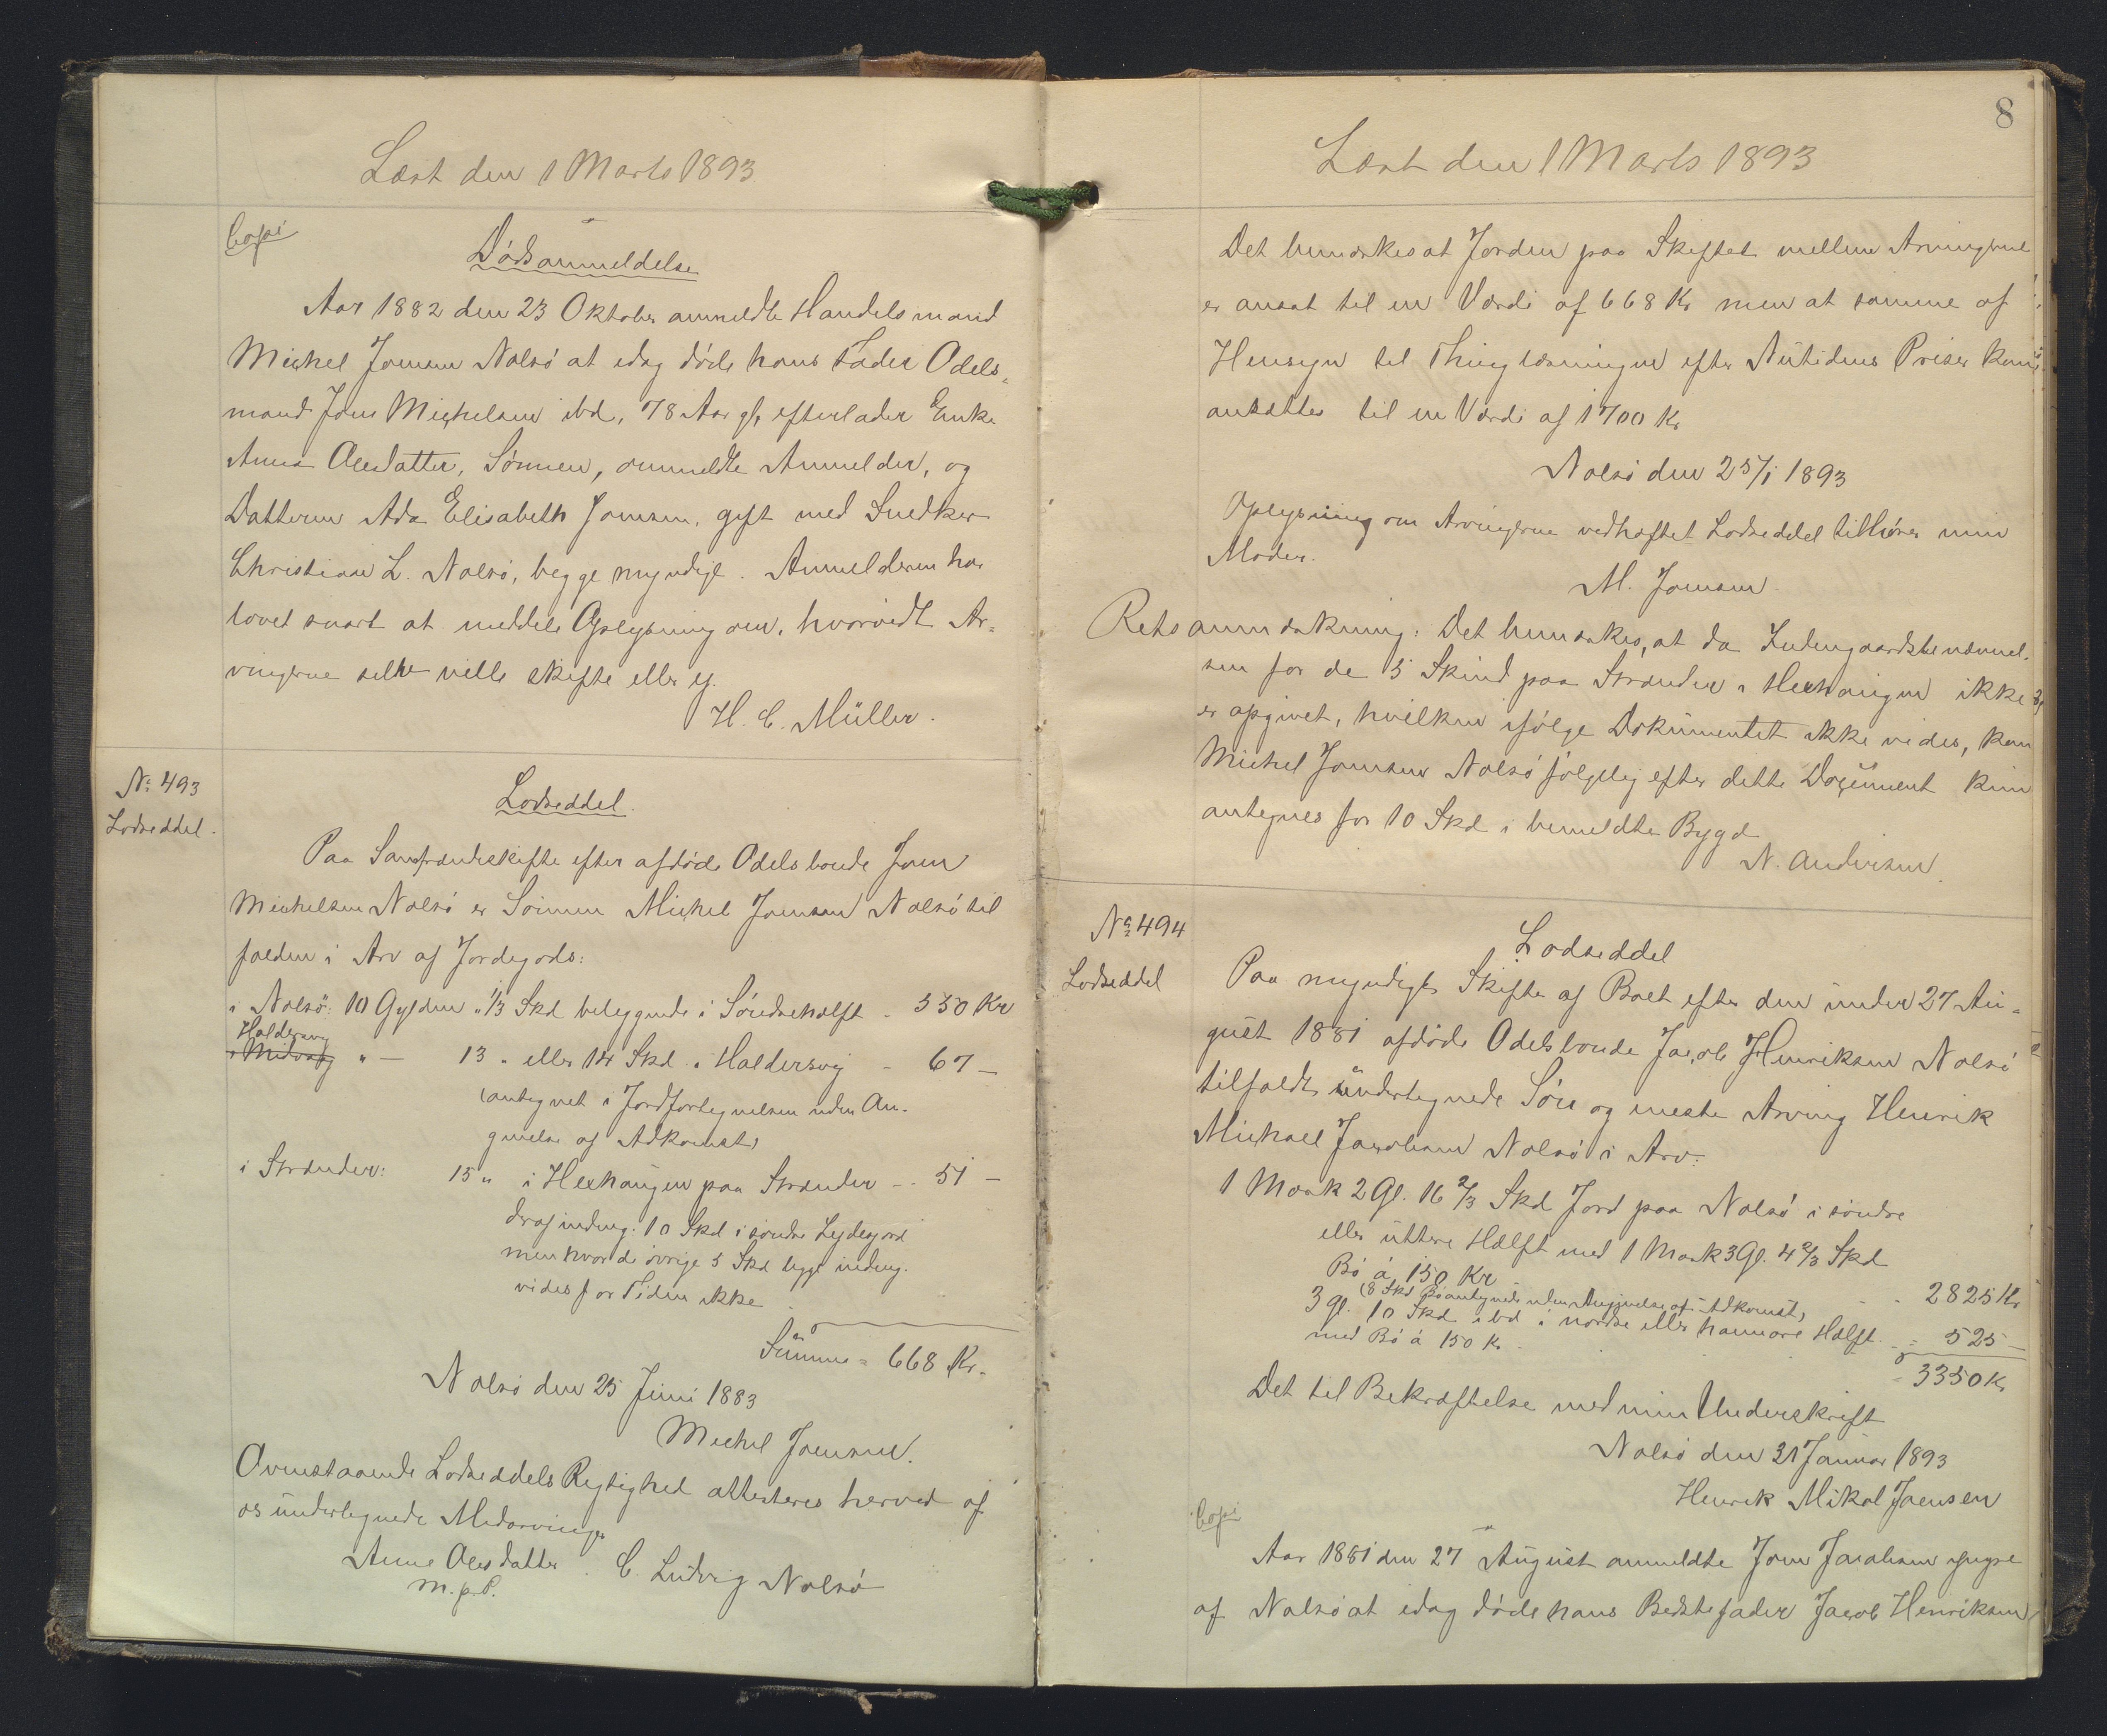 Læst den 1 Marts 1893
Copi
Dødsanmeldelse
Aar 1882 den 23 Oktober anmeldte Handelsmand
Michel Joensen Nolsø at idag døde hans Fader Odels-
mand Joen Michelsen ibd, 78 Aar gl, efterlader Enke
Anna Olesdatter, Sønnen, anmeldte Anmelder, og
Datteren Ada Elisabeth Joensen, gift med Snedker
Christian L. Nolsø, begge myndige. Anmelderen har
lovet snart at meddele Oplysning om, hvorvidt Ar-
vingerne selv ville skifte eller ej.
H. C. Müller.
No 493
Lodseddel.
Lodseddel.
Paa Samfrændeskifte efter afdøde Odelsbonde Joen
Michelsen Nolsø er Sönnen Michel Joensen Nolsø til
falden i Arv af Jordegods:
i Nolsø: 10 Gylden " 1/3 Skd beliggende i Søndrehalft - 550 Kr
Haldersvig
i Midvaag " — 13 " eller 14 Skd i Haldersvig - 67 —
(antegnet i Jordfortegnelsen uden An-
givelse af Adkomst)
i Strænder: 15 " i Hexhaugen paa Strænder -- 51 —
deraf indeng. 10 Skd i söndre Lejdegjord
men hvor de övrige 5 Skd ligge indeng.
vides for Tiden ikke
Summa = 668 Kr.
Nolsø den 25 Juni 1883
Michel Joensen.
Ovenstaaende Lodseddels Rigtighed attesteres herved af
os undertegnede Medarvinger
Anne Olesdatter C. Ludvig Nolsø
m. p. P.
8
Læst den 1 Marts 1893
Det bemærkes at Jorden paa Skiftet mellem Arvingerne
er ansat til en Værdi af 668 Kr men at samme af
Hensyn til Thinglæsningen efter Nutidens Priser kan
ansættes til en Værdi af 1700 Kr
Nolsø den 25/1 1893
Oplysning om Arvingerne vedhæftet Lodseddel tilhører min
Moder.
M. Joensen
Retsanmærkning: Det bemærkes, at da Indengaardsbenævnel-
sen for de 5 Skind paa Strænder i Hexhaugen ikke
er opgivet, hvilken ifølge Dokumentet ikke vides, kan
Michel Joensen Nolsø følgelig efter dette Document kun
antegnes for 10 Skd i bemeldte Bygd
N. Andersen
No 494
Lodseddel
Lodseddel
Paa myndigt Skifte af Boet efter den under 27 Au-
gust 1881 afdøde Odelsbonde Jacob Henriksen Nolsø
tilfaldt undertegnede Søn og eneste Arving Henrik
Michael Jacobsen Nolsø i Arv:
1 Mark 2 Gl. 16 2/3 Skd Jord paa Nolsø i söndre
eller üttere Halft med 1 Mark 3 Gl. 4 2/3 Skd
Bö á 150 Kr - - 2825 Kr
(8 Skd Bö antegnede uden Angivelse af Adkomst)
3 Gl. 10 Skd ibd i nordre eller hannare Halft
med Bö á 150 Kr. - - 525 —
- 3350 Kr
Det til Bekræftelse med min Underskrift
Nolsø den 31 Januar 1893
Henrik Mikal Joensen
Copi
Aar 1881 den 27 August anmeldte Joen Jacobsen yngre
af Nolsø at idag døde hans Bedstefader Jacob Henriksen